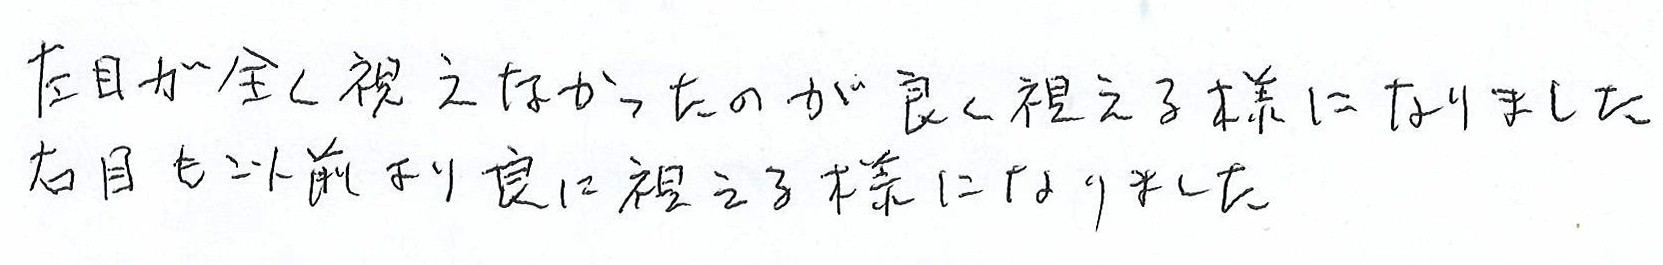 左目が全く視えなかったのが良く視える様になりました
右目も以前より良に視える様になりました